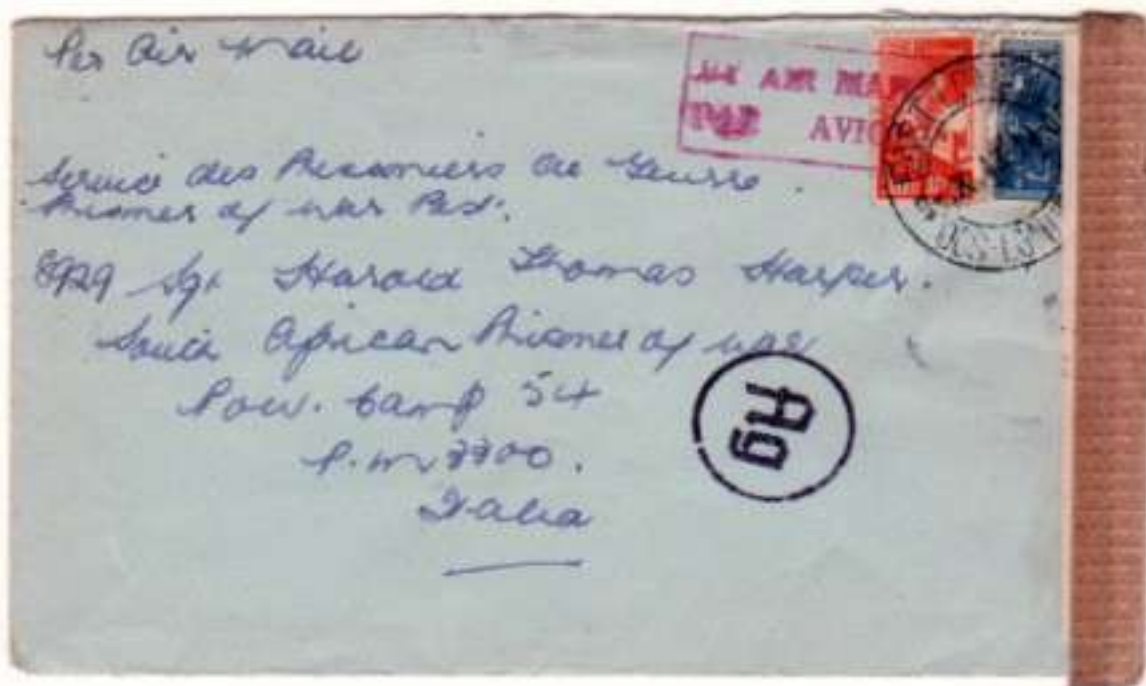 Per Air Mail
BY AIR MAIL
PAR AVION
Service des Prisoniers de Guerre.
Prisoner of war Post.
Sgt Harold Thomas Harper.
South African Prisoner of war
P.O.W. Camp 54
P.M. 3300.
Italia
Ag